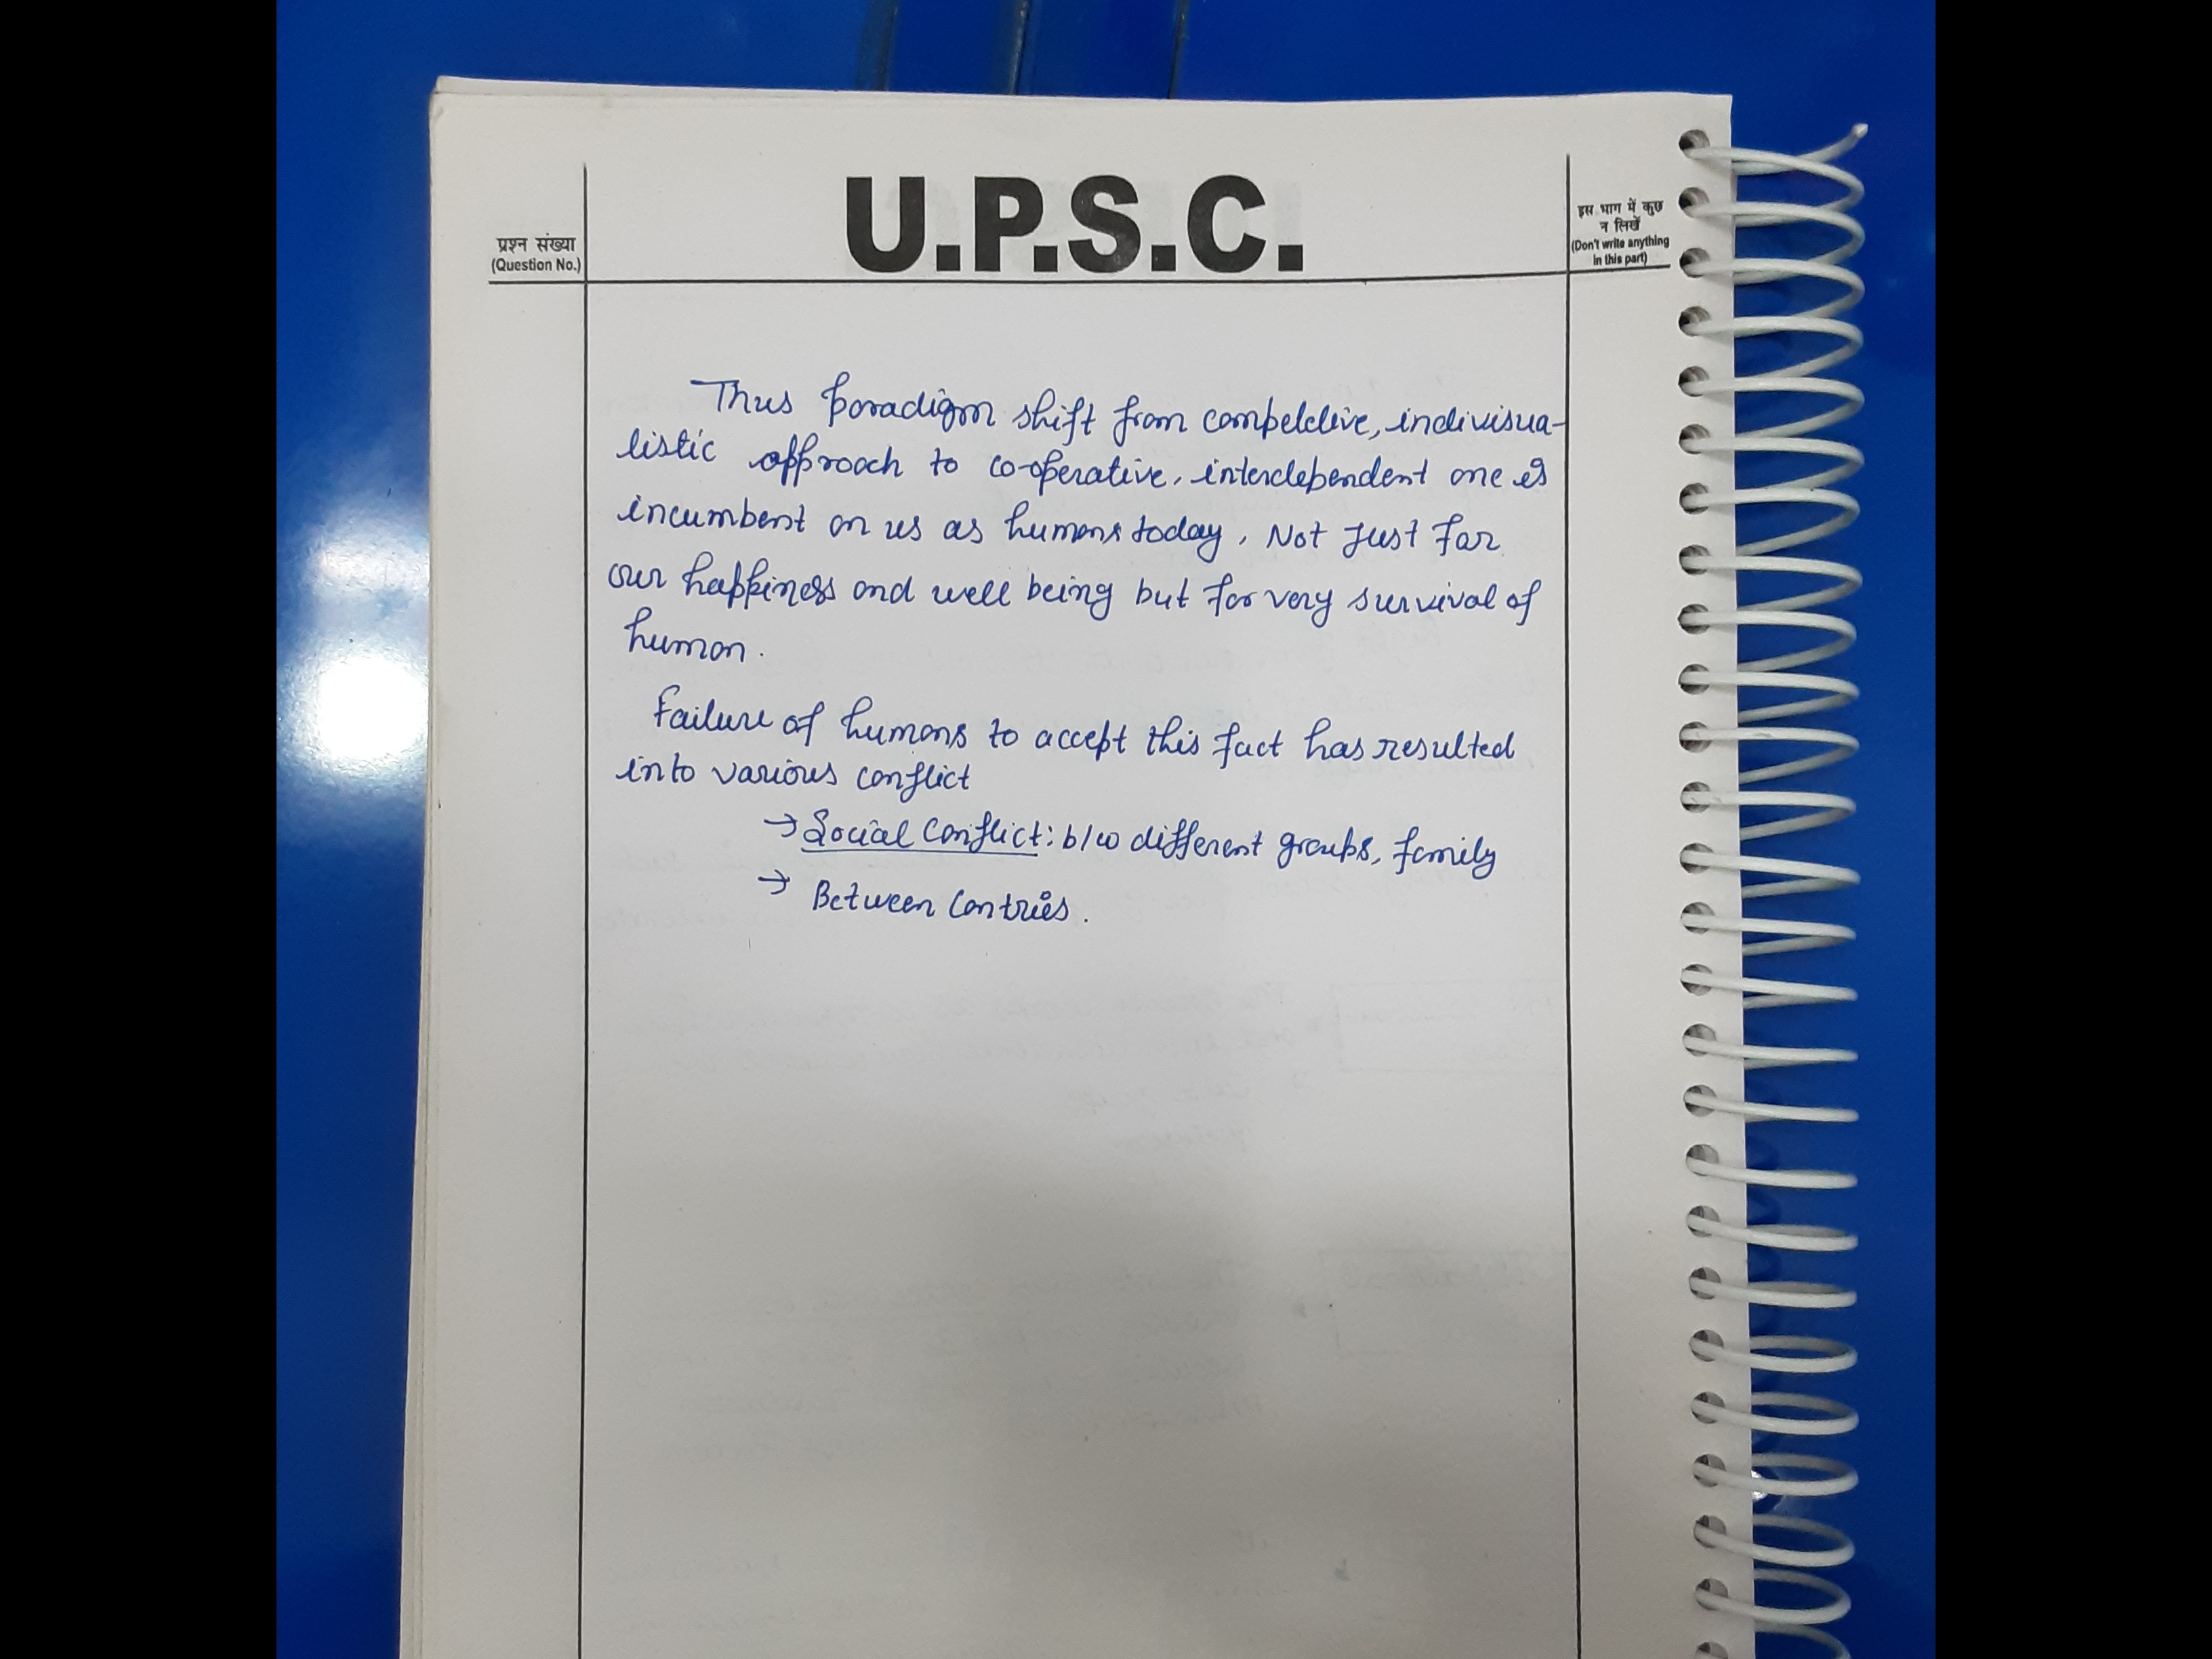 U.P.S.C.
प्रश्न संख्या
(Question No.)
इस भाग में कुछ
न लिखें
(Don't write anything
in this part)
Thus paradigm shift from competitive, indivisua-
listic approach to co-operative, interdependent one is
incumbent on us as humans today, Not Just for
our happiness and well being but for very survival of
human.
Failure of humans to accept this fact has resulted
into various conflict
→ Social Conflict: b/w different groups, family
→ Between Contries.